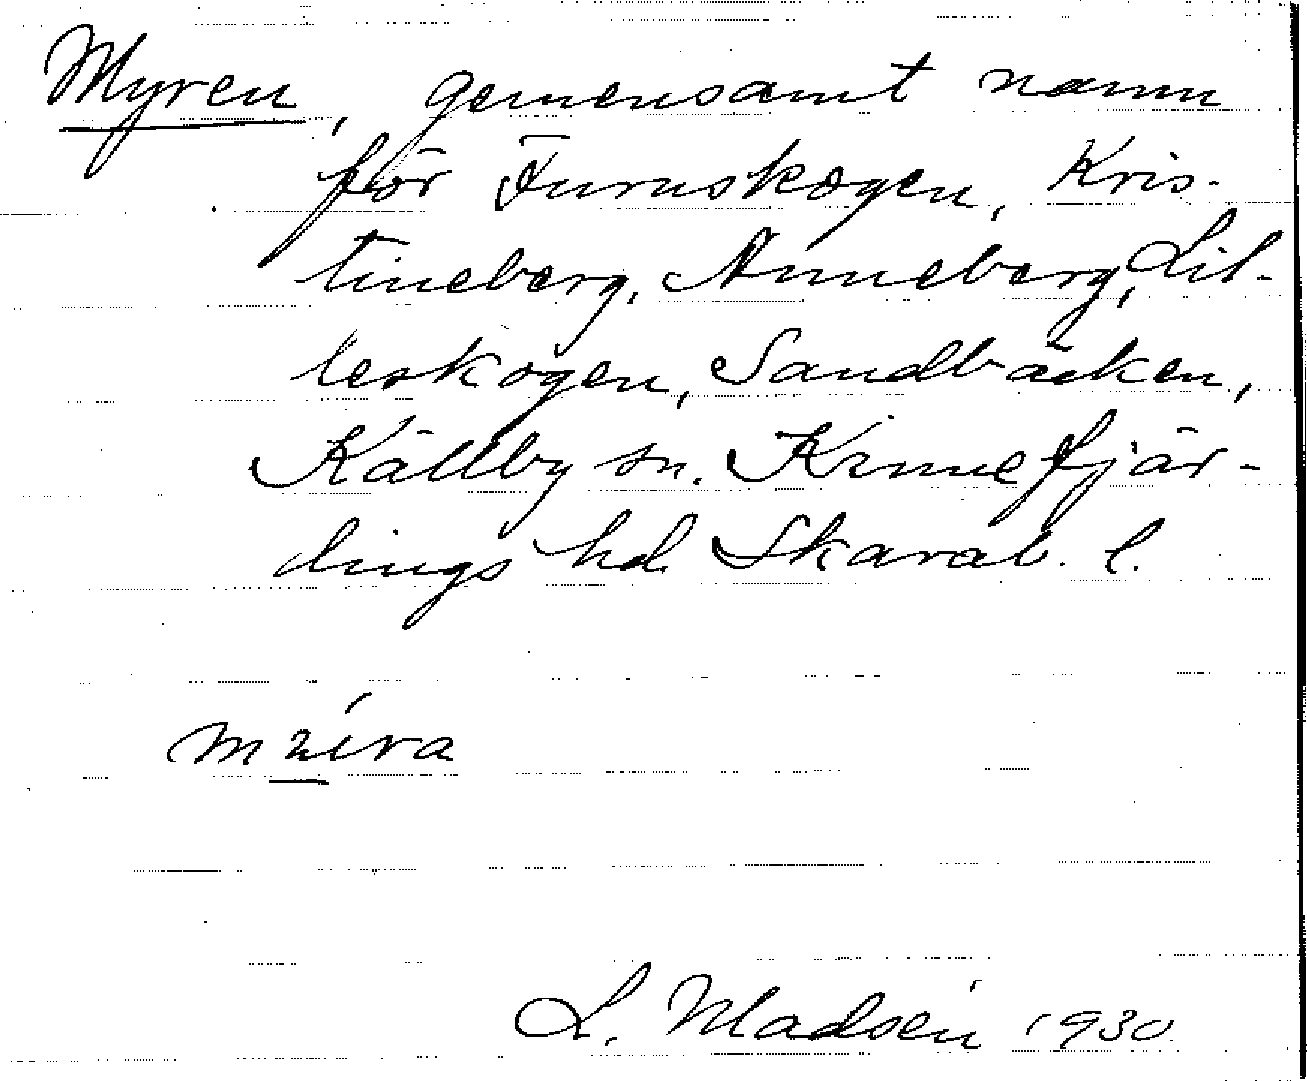 Myren, gemensamt namn
för Furuskogen, Kris-
tineberg, Anneberg, Lil-
leskogen, Sandbäcken,
Källby sn. Kinnefjär-
dings hd Skarab. l.
L. Madsén 1930